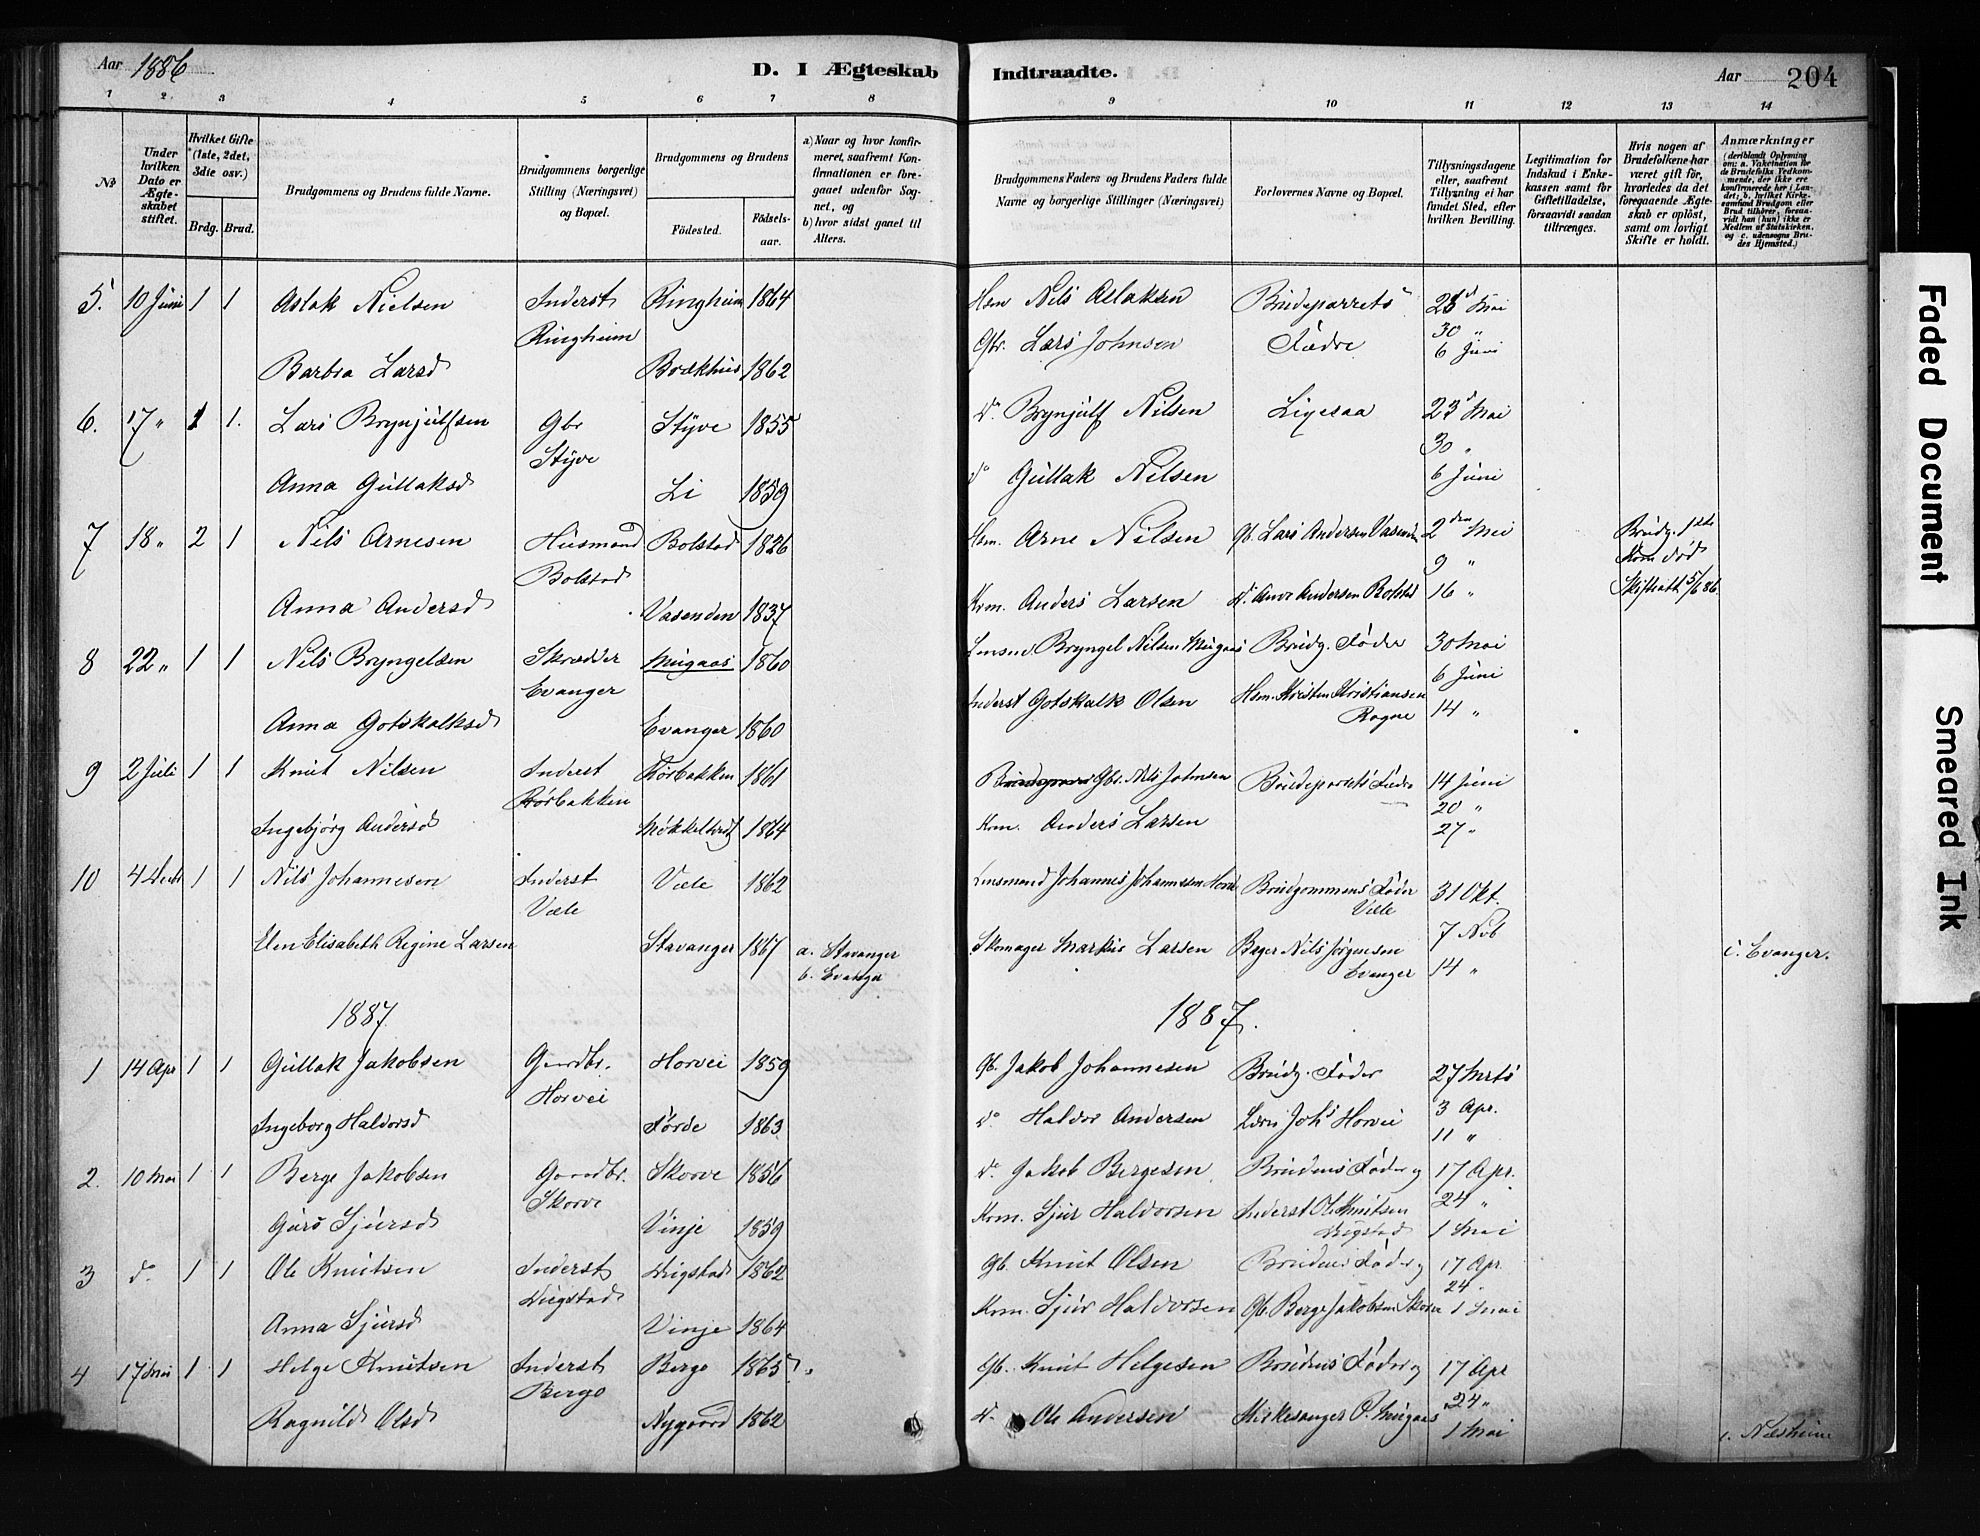 Aar 1886
D. I Ægteskab Indtraadte.
Aar 204
1 2 3 4 5 6 7 8 9 10 11 12 13 14
No
Under hvilken Dato er Ægteskabet stiftet.
Hvilket Gifte (1ste, 2det, 3die osv.)
Brdg. Brud.
Brudgommens og Brudens fulde Navne.
Brudgommens borgerlige Stilling (Næringsvei) og Bopæl.
Brudgommens og Brudens
Fødested.
Fødselsaar.
a) Naar og hvor konfirmeret, saafremt Konfirmationen er foregaaet udenfor Sognet, og
b) hvor sidst gaaet til Alters.
Brudgommens Faders og Brudens Faders fulde Navne og borgerlige Stillinger (Næringsvei)
Forlovernes Navne og Bopæl.
Tillysningsdagene eller, saafremt Tillysning ei har fundet Sted, efter hvilken Bevilling.
Legitimation for Indskud i Enkekassen samt for Giftetilladelse, forsaavidt saadan tiltrænges.
Hvis nogen af Brudefolkene har været gift før, hvorledes da det foregaaende Ægteskab er opløst, samt om lovligt Skifte er holdt.
Anmærkninger (deriblandt Oplysning om: a. Vakcination for de Brudefolks Vedkommende, der ikke ere konfirmerede her i Landet; b. hvilket Kirkesamfund Brudgom eller Brud tilhører, forsaavidt han (hun) ikke er Medlem af Statskirken, og c. udensogns Brudes Hjemsted.)
5. 10 Juni 1 1 Aslak Nielsen Inderst Ringheim 1864 Hsm Nils Aslaksen Brudeparrets 23d Mai
Ringheim Gbr. Lars Johnsen Fædre 30 "
6 Juni
Barbra Larsd Brækhus 1862
6. 17 " 1 1. Lars Brynjulfsen Gbr Styve 1855 do Brynjulf Nilsen Ligesaa 23d Mai
Styve 30 "
Anna Gullaksd Li 1859 do Gullak Nilsen 6 Juni
7 18 " 2 1 Nils Arnesen Husmand Bolstad 1826 Hsm. Arne Nilsen Gb. Lars Andersen Vasenden 2den Mai Brudg. 1ste
Bolstad 9 " Kone død
Anna Andersd Vasenden 1837 Kom. Anders Larsen do Andersen Bolstd 16 " Skifteatt 5/6 86.
8 22 " 1 1 Nils Bryngelsen Skrædder Mugaas 1860 Bryngel Nilsen Mugaas Brudg. Fader 30 Mai
Evanger 6 Juni
Anna Gotskalksd Evanger 1860 Inderst Gotskalk Olsen Hsm. Kristen Kristiansen 14 "
9 2 Juli 1 1 Knut Nilsen Inderst Rørbakken 1861 Gbr. Nils Johnsen Brudeparrets Fædre 14 Juni
Rørbakken 20 "
Ingebjørg Andersd 1864 Kom. Anders Larsen 27 "
10 4 Decbr 1 1 Nils Johannesen Inderst Væle 1862 Lensmand Johannes Johannesen Brudgommens Fader 31 Okt.
Væle Væle
Elen Elisabeth Regine Larsen Stavanger 1867 a. Stavanger Skomager Markus Larsen Bager Nils Jørgensen 7 Nvb c. Evanger.
b. Evanger Evanger 14 "
1887. 1887.
1 14 Apr 1 1 Gullak Jakobsen Gaardbr. Horvei 1859 Gb. Jakob Johannesen Brudg. Fader 27 Mrts
Horvei 3 Apr.
Ingeborg Haldorsd Førde 1863 do Haldor Andersen Lars Johs Horvei 11 "
2. 10 Mai 1 1 Berge Jakobsen Gaardbr. Skorve 1856 do Jakob Bergesen Brudens Fader og 17 Apr.
Skorve 24 "
Guro Sjursd Vinje 1859 Kom. Sjur Haldorsen Inderst Ole Knutsen 1 Mai
3 do 1 1 Ole Knutsen Inderst 1862 Gb. Knut Olsen Brudens Fader og 17 Apr
24 "
Anna Sjursd Vinje 1864 Kom. Sjur Haldorsen Gb. Berge Jakobsen Skorve 1 Mai
4 17 Mai 1 1 Helge Knutsen Inderst Berge 1865 Gb. Knut Helgesen Brudens Fader og 17 Apr
Berge 24 "
Ragnild Olsd Nygaard 1862 do Ole Andersen Kirkesanger P. Mugaas 1 Mai
c. Næsheim
Faded Document
Smeared Ink